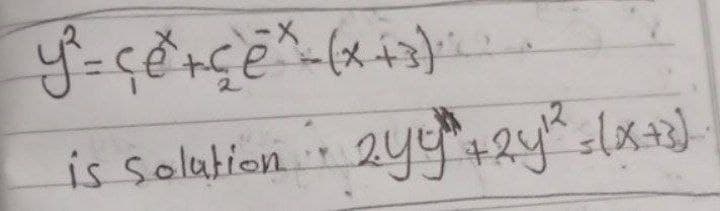 y² = c₁eˣ + c₂e⁻ˣ - (x+3)
is solution : 2yy" + 2y'² = (x+3)